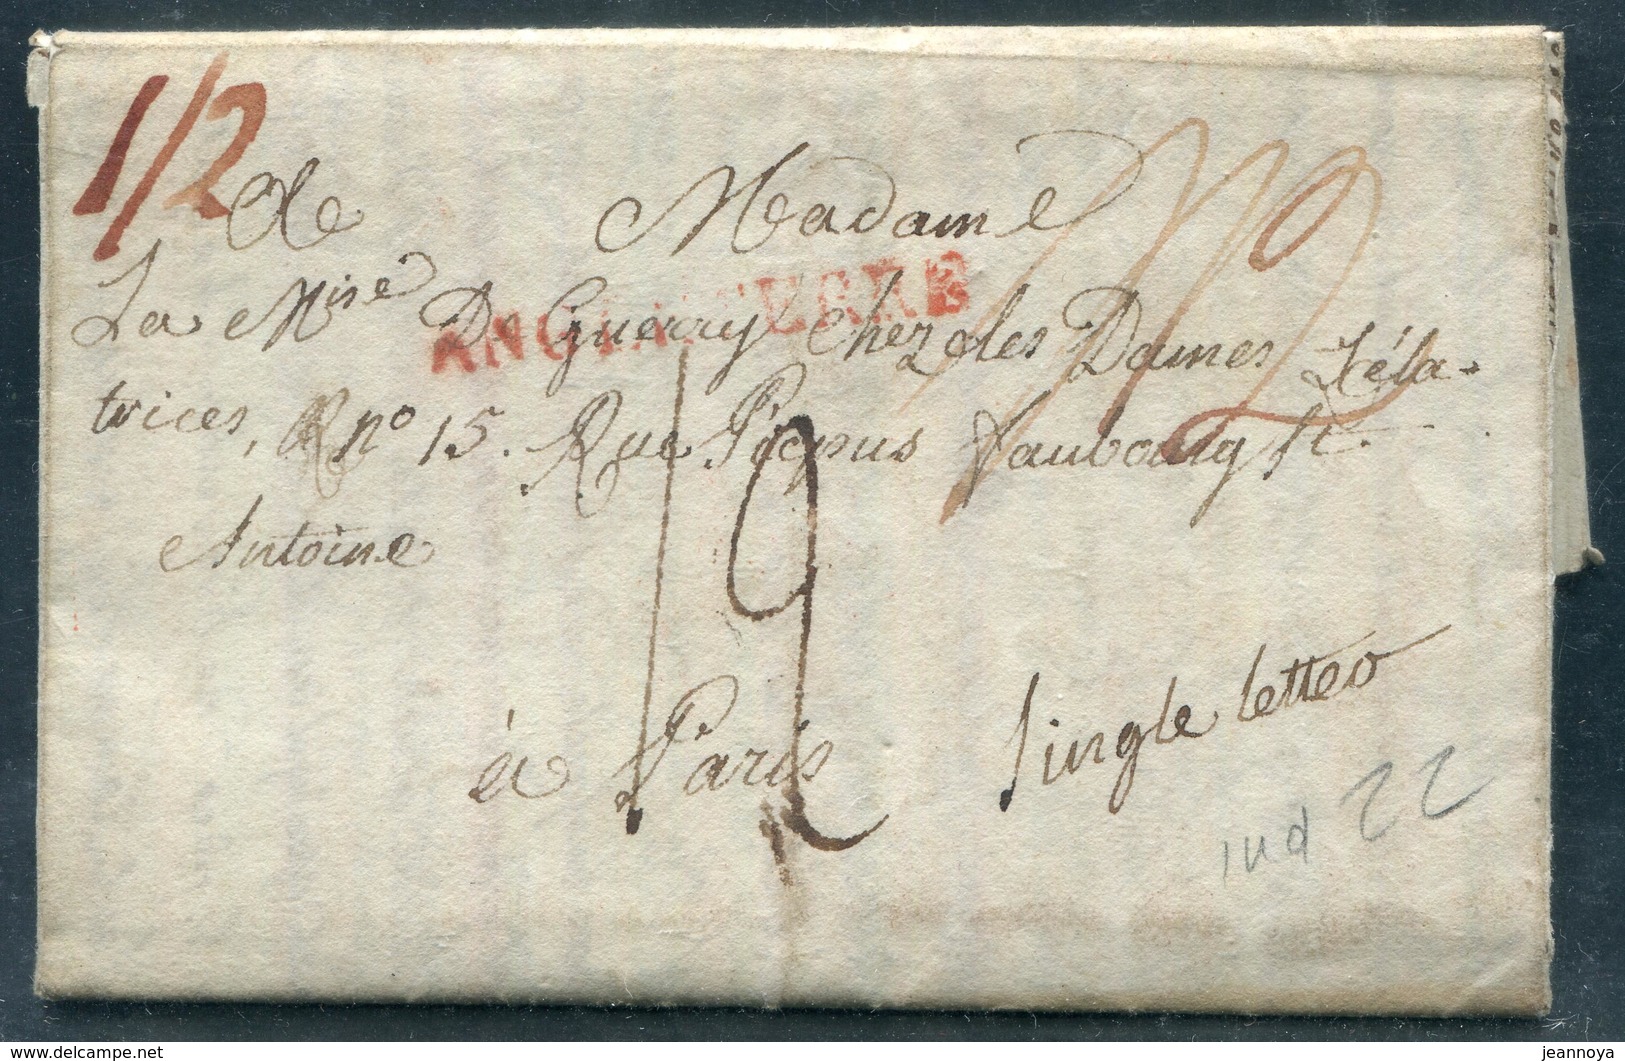 1/2
de Madame
La Mise De Guerry chez des Dames Zéla-
ANGLETERRE
trices, no 15. Rue Picpus faubourg st.
Antoine
19
à Paris
Single letter
ind 22
delcampe.net
jeannoya